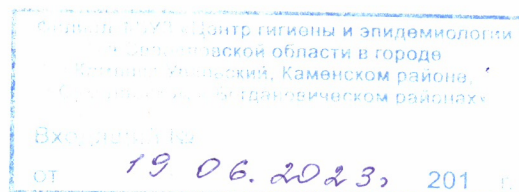 «Центр гигиены и эпидемиологии
в Свердловской области в городе
Каменск-Уральский, Каменском районе,
Богдановическом районах»
Входящий №
от 19 06. 2023г 201 г.